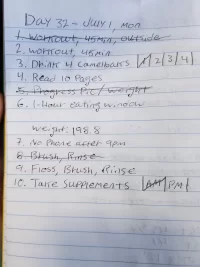 Day 32 - July 1, Mon
1. Workout, 45min, outside
2. Workout, 45min
3. Drink 4 Camelbaks 1/2/3/4
4. Read 10 Pages
5. Progress Pic / Weight
6. 1-Hour eating window
Weight: 198.8
7. No Phone after 9pm
8. Brush, Rinse
9. Floss, Brush, Rinse
10. Take Supplements AM/PM